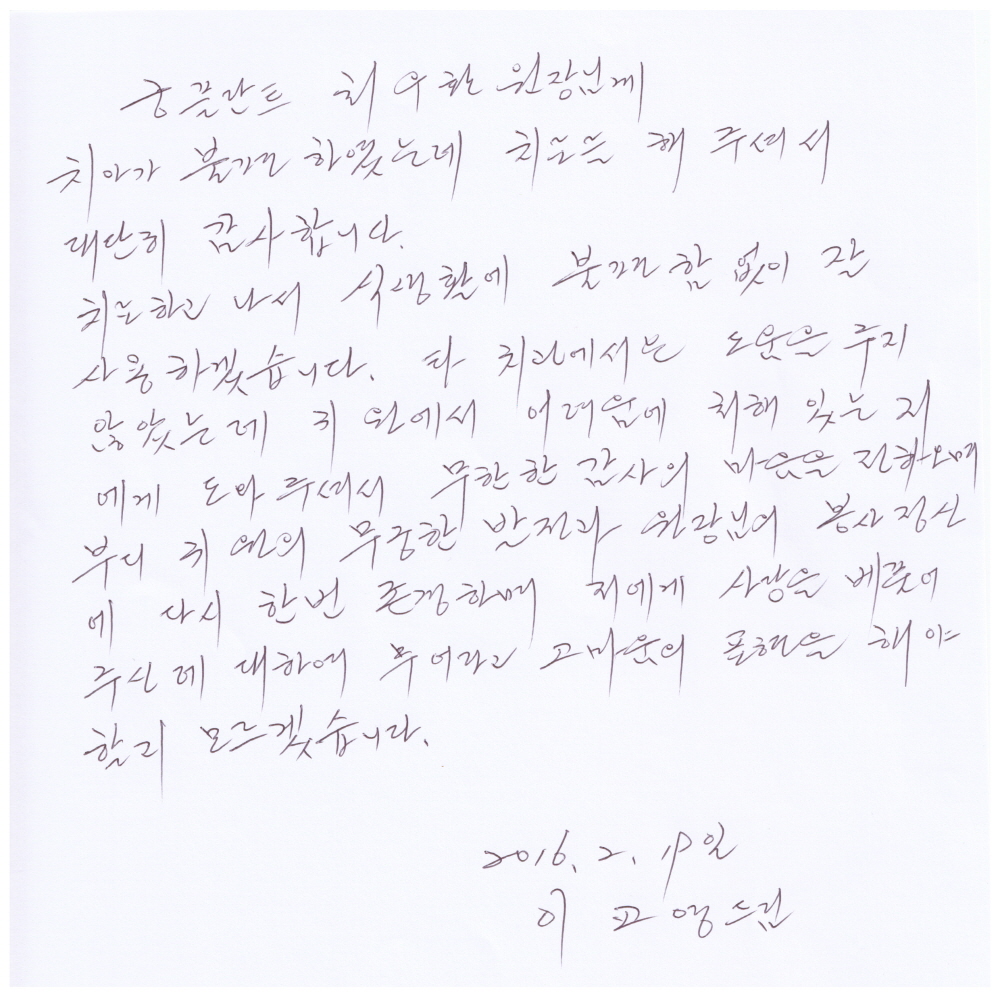 궁플란트 최우환 원장님께
치아가 불편하였는데 치료를 해 주셔서
대단히 감사합니다.
치료하고 나서 식생활에 불편함 없이 잘
사용하겠습니다. 타 치과에서는 도움을 주지
않았는데 귀 원에서 어려움에 처해 있는 저
에게 도와 주셔서 무한한 감사의 마음을 전하오며
부디 귀 원의 무궁한 발전과 원장님의 봉사정신
에 다시 한번 존경하며 저에게 사랑을 베풀어
주신데 대하여 무어라고 고마움의 표현을 해야
할지 모르겠습니다.
2016. 2. 19일
이 교영드림